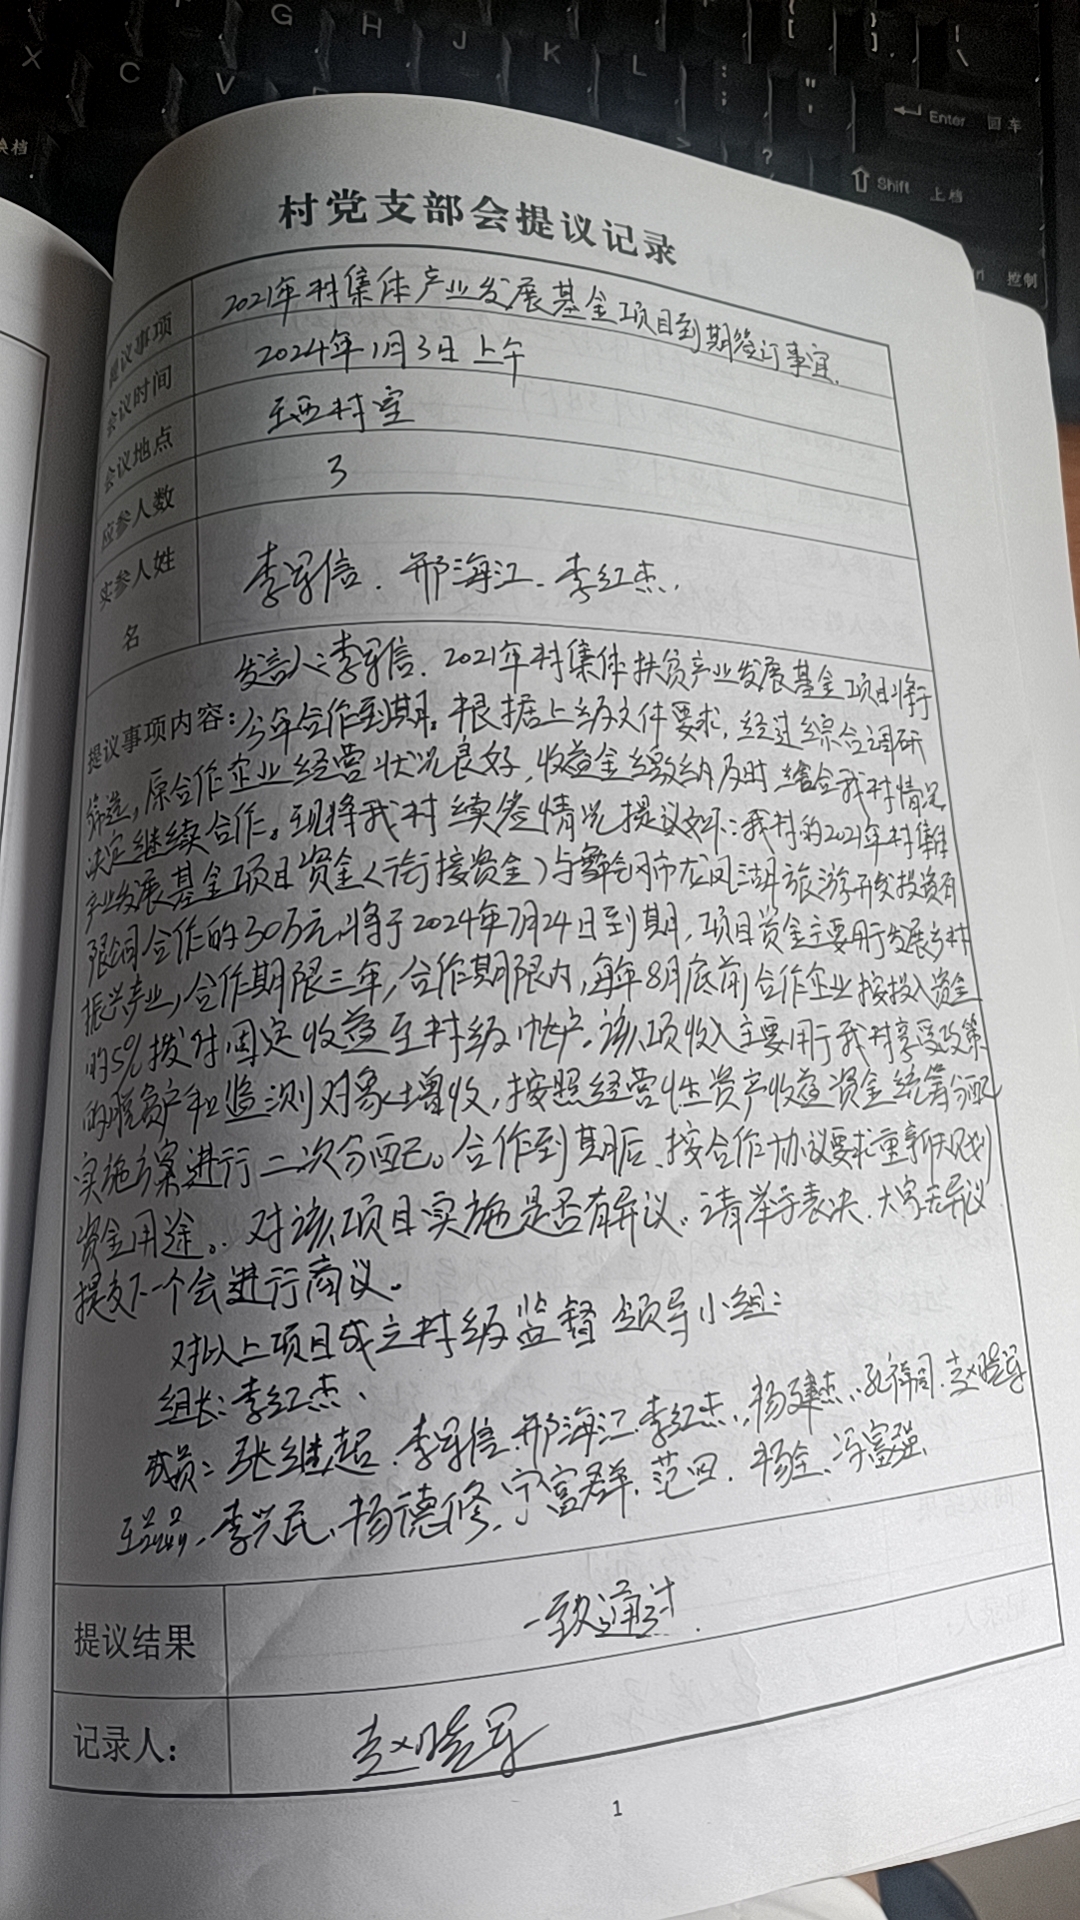 村党支部会提议记录
提议事项 2021年村集体产业发展基金项目到期签订事宜.
会议时间 2024年1月3日上午
会议地点 王西村室
应参人数 3
实参人姓名 李军信. 邢海江. 李红杰.
发言人:李军信. 2021年村集体扶贫产业发展基金项目将于
提议事项内容: 今年合作到期。根据上级文件要求,经过综合调研
筛选,原合作企业经营状况良好,收益金缴纳及时 结合我村情况
决定继续合作。现将我村续签情况提议如下:我村的2021年村集体
产业发展基金项目资金(衔接资金)与舞钢市龙凤湖旅游开发投资有
限公司合作的30万元,将于2024年7月24日到期,项目资金主要用于发展乡村
振兴产业,合作期限三年,合作期限内,每年8月底前合作企业按投入资金
的5%拨付固定收益至村级帐户。该项收入主要用于我村享受政策
的脱贫户和监测对象增收,按照经营性资产收益资金统筹分配
实施方案进行二次分配。合作到期后,按合作协议要求重新规划
资金用途。对该项目实施是否有异议。请举手表决.大家无异议
提交下一个会进行商议。
对以上项目成立村级监督领导小组:
组长:李红杰、
成员:张继超.李军信.邢海江.李红杰、杨建杰、孔祥同.赵晓军
李兴民、杨德修、宁富群、范四.杨全、冯富强
提议结果 一致通过.
记录人: 赵晓军
1
G
H
J
K
L
X
C
V
Enter 回车
Shift 上档
控制
换档